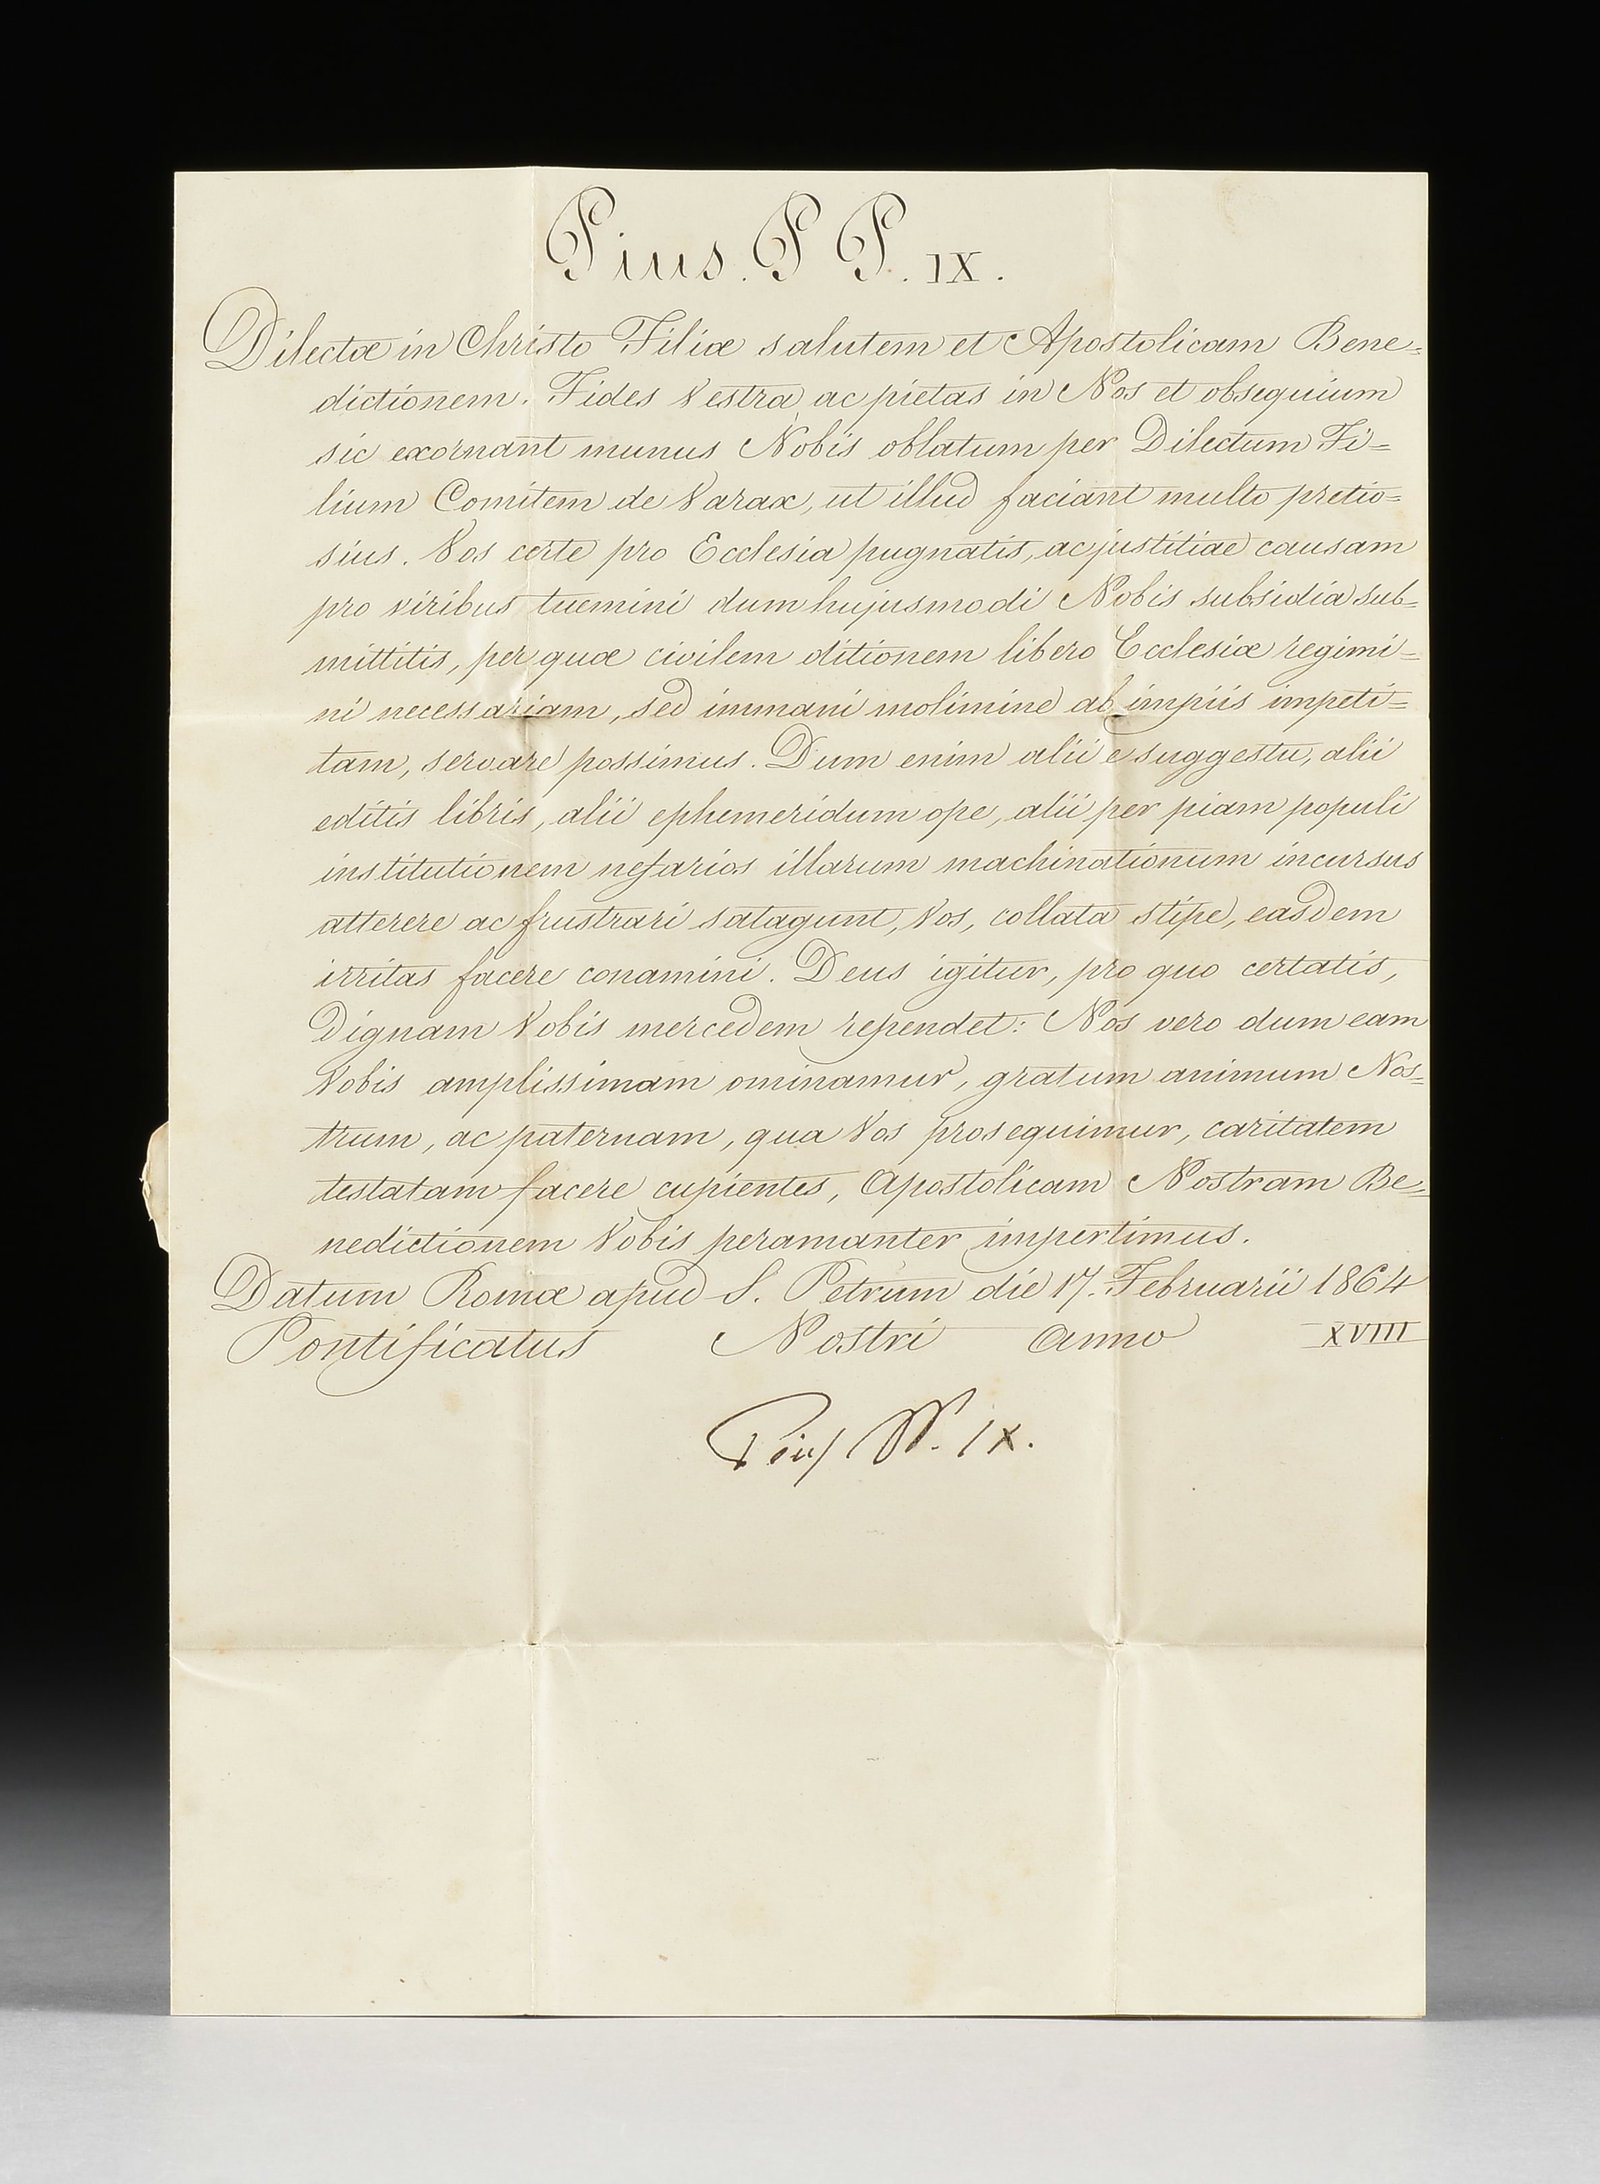 Pius. P P. IX.
Dilectæ in Christo Filiæ salutem et Apostolicam Bene=
dictionem. Fides Vestra ac pietas in Nos et obsequium
sic exornant munus Nobis oblatum per Dilectum Fi=
lium Comitem de Varax, ut illud faciant multo pretio=
sius. Vos certe pro Ecclesia pugnatis, ac justitiae causam
pro viribus tuemini dum hujusmodi Nobis subsidia sub=
mittitis, per quæ civilem ditionem libero Ecclesiæ regimi=
ni necessariam, sed immani molimine ab impiis impeti=
tam, servare possimus. Dum enim alii e suggestu, alii
editis libris, alii ephemeridum ope, alii per piam populi
institutionem nefarios illarum machinationum incursus
atterere ac frustrari satagunt, Vos, collata stipe, easdem
irritas facere conamini. Deus igitur, pro quo certatis,
Dignam Vobis mercedem rependet: Nos vero dum eam
Vobis amplissimam ominamur, gratum animum Nos=
trum, ac paternam, qua Vos prosequimur, caritatem
testatam facere cupientes, Apostolicam Nostram Be=
nedictionem Vobis peramanter impertimus.
Datum Romæ apud S. Petrum die 17. Februarii 1864
Pontificatus Nostri Anno XVIII
Pius PP. IX.